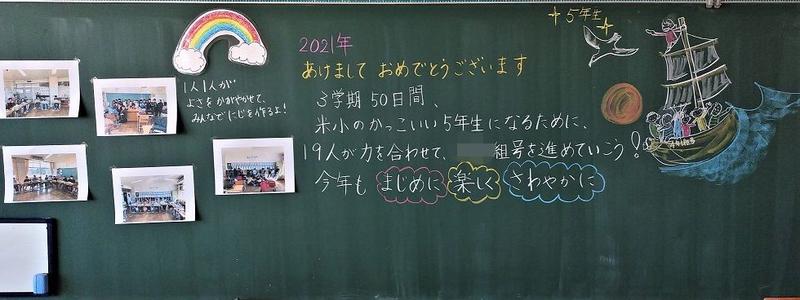 1人1人が
よさをかがやかせて、
みんなでにじを作ろよ!
2021年
あけまして おめでとうございます
3学期 50日間、
米小のかっこいい5年生になるために、
19人が力を合わせて、 組号を進めていこう!
今年も まじめに 楽しく さわやかに
5年生